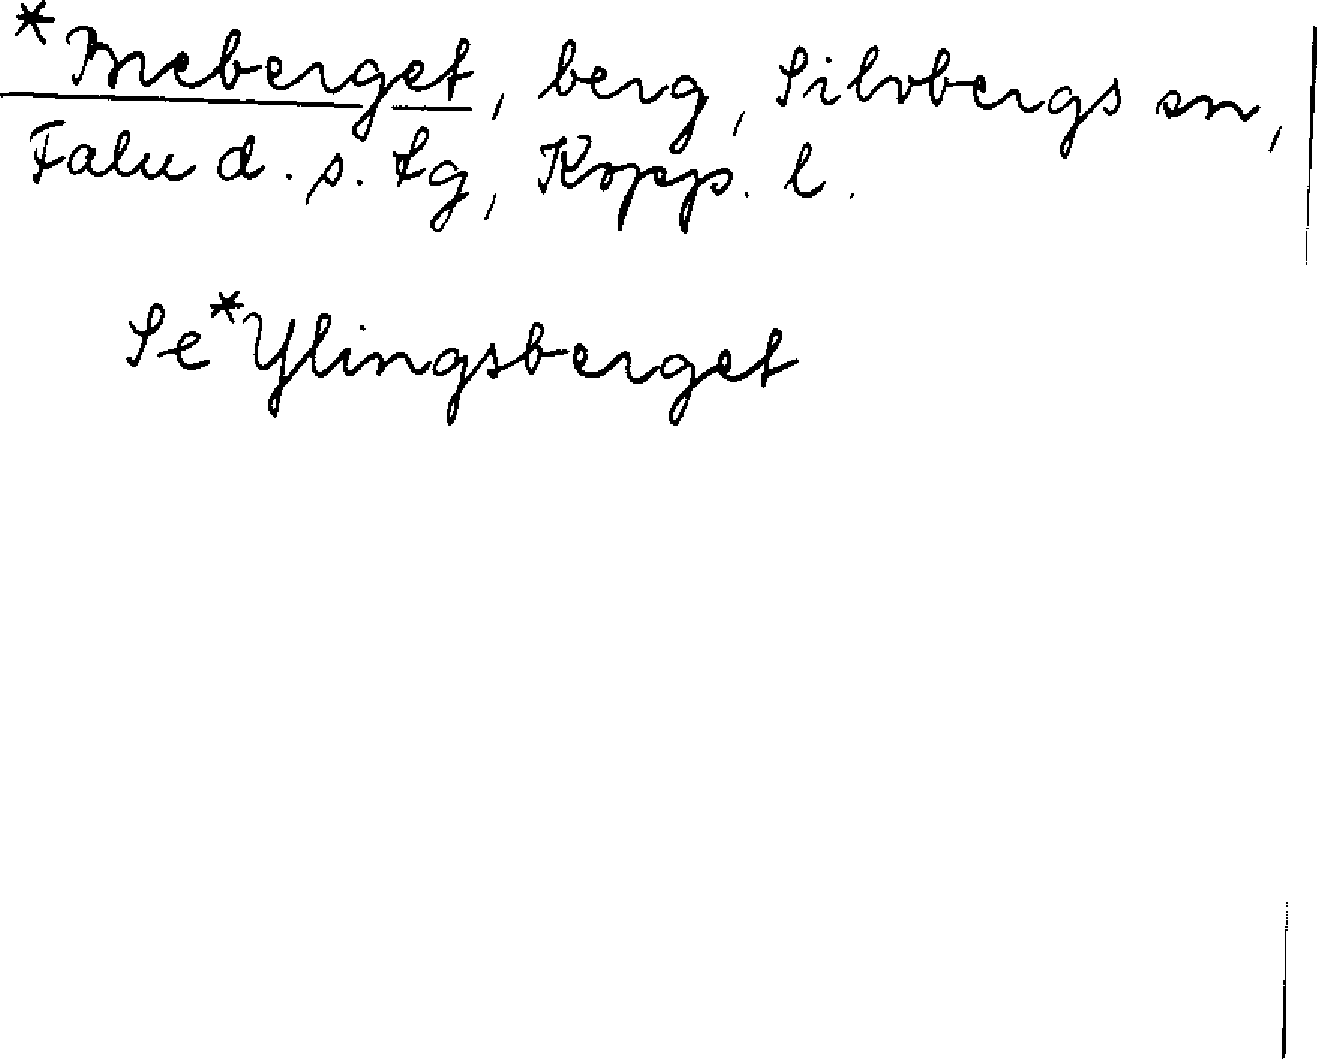 *Breberget, berg, Silvbergs sn,
Falu d. s. tg, Kopp. l.
Se *Ylingsberget